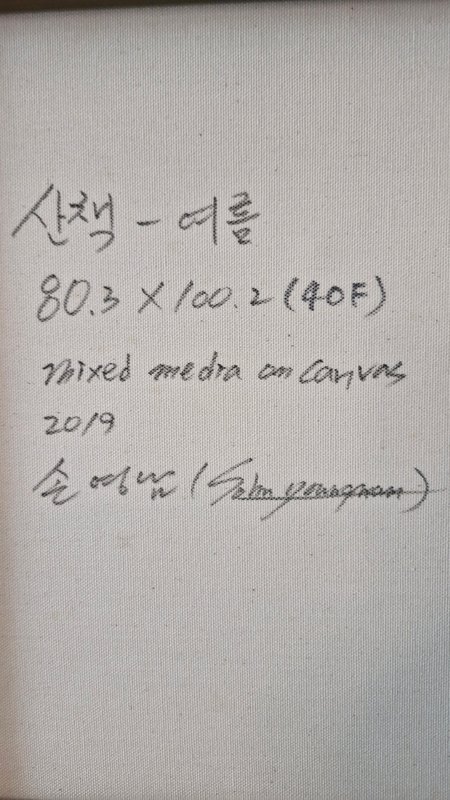 산책 - 여름
80.3 X 100.2 (40F)
mixed media on canvas
2019
손영남 (Sohn youngnam)